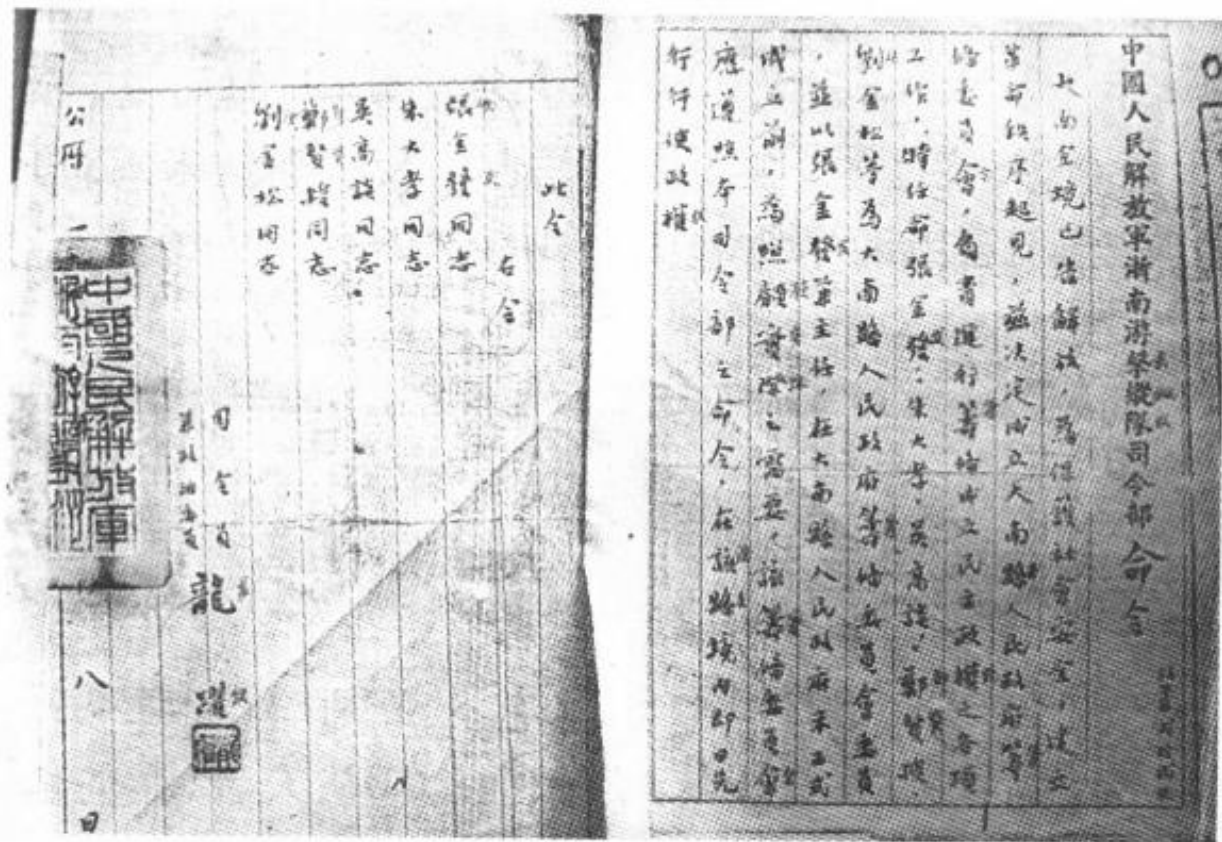 中國人民解放軍浙南游擊縱隊司令部命令
大南全境已告解放,為保護社會安全,建立
革命秩序起見,茲决定成立大南縣人民政府籌
備委員會,負責進行籌備成立民主政權之各項
工作,特任命張金發、朱大孝、吳高談、鄭賢塽、
劉金松等為大南縣人民政府籌備委員會委員
,並以張金發兼主任,在大南縣人民政府未正式
成立前,為照顧實際之需要,該籌備委員會
應遵照本司令部之命令,在該縣境內即日先
行行使政權
此令
右令
張金發同志
朱大孝同志
吳高談同志
鄭賢同志
劉金松同志
司令員
兼政治委員
龍躍
中國人民解放軍
公曆一
八
日